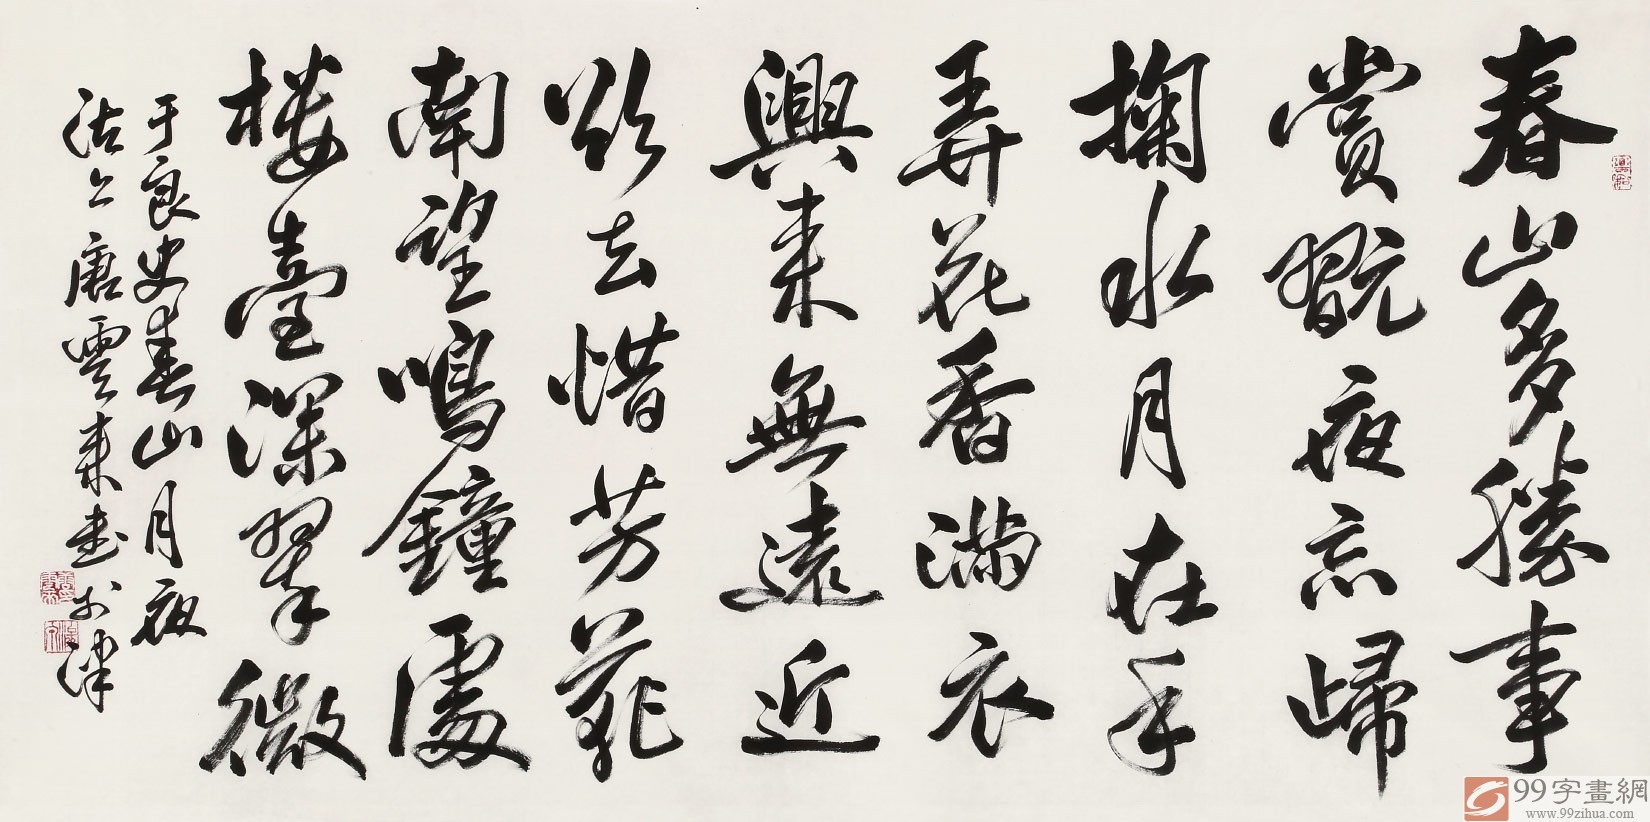 春山多勝事
賞翫夜忘歸
掬水月在手
弄花香滿衣
興来無遠近
欲去惜芳菲
南望鳴鐘處
楼臺深翠微
于良史春山月夜
沽上唐雲来書於津
99字畫網
www.99zihua.com